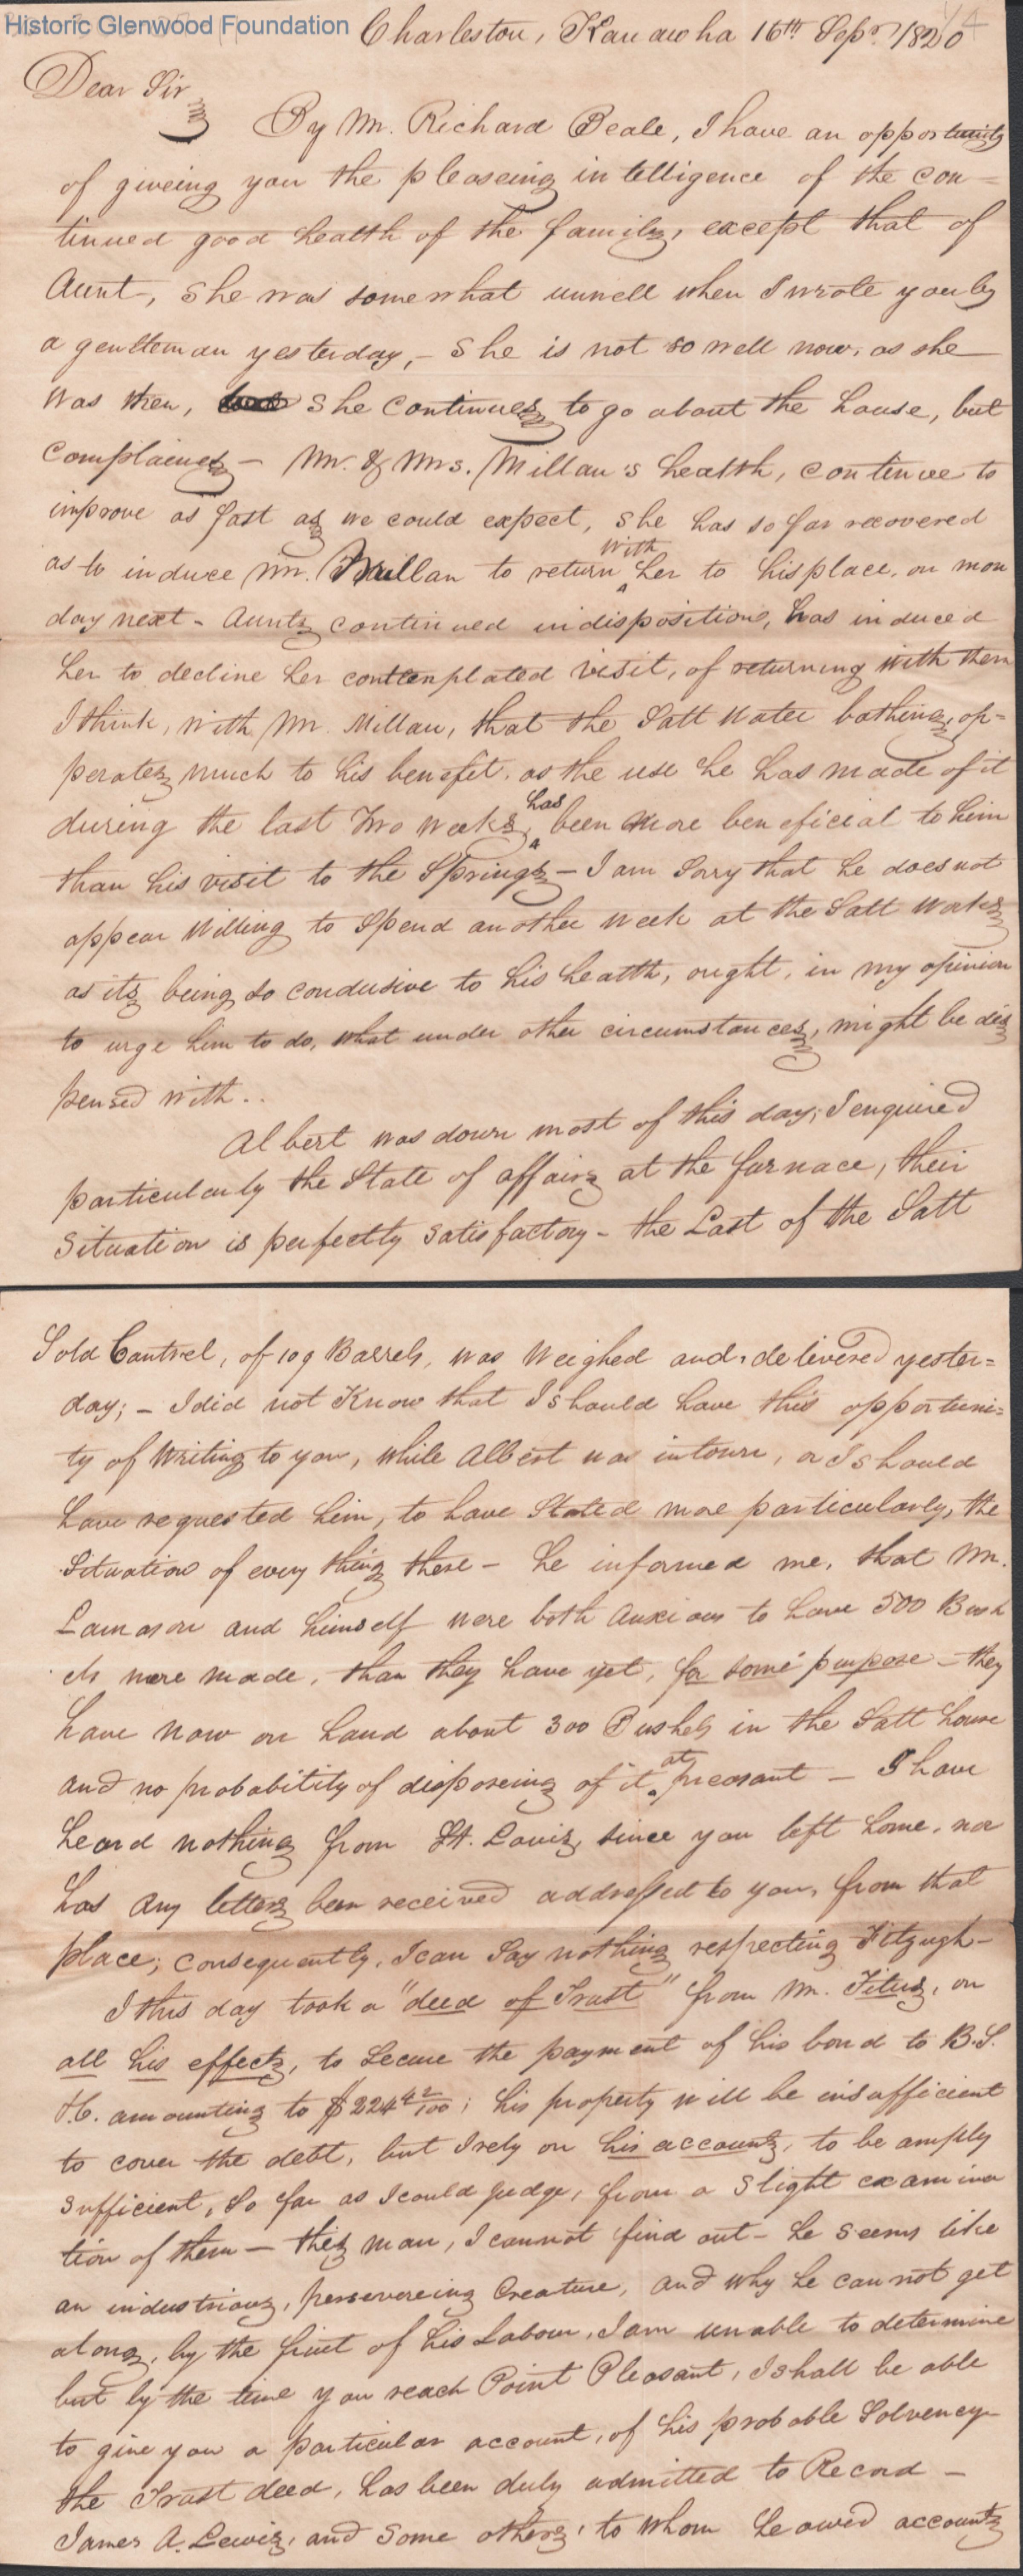 Historic Glenwood Foundation
Charleston, Kanawha 16th Sepr. 1820
Dear Sir
By Mr. Richard Beale, I have an opportunity
of giveing you the pleaseing intelligence of the con=
tinued good health of the family, except that of
Aunt, She was somewhat unwell when I wrote you by
a gentleman yesterday, – She is not so well now, as she
was then, She continues to go about the house, but
complaines – Mr. & Mrs. Millan's health, continue to
improve as fast as we could expect, She has so far recovered
as to induce Mr. Millan to return with her to his place, on mon
day next – Aunts continued indisposition, has induced
her to decline her conttenplated visit, of returning with them
I think, with Mr. Millan, that the Salt Water batheing, op=
perates much to his benefit. as the use he has made of it
during the last Two weeks, has been more beneficial to him
than his visit to the Springs – I am Sorry that he does not
appear Willing to Spend another week at the Salt Works
as its being so condusive to his health, ought, in my opinion
to urge him to do, what under other circumstances, might be dis
pensed with..
Albert was down most of this day; I enquired
particularly the State of affairs at the furnace, their
situation is perfectly satisfactory – the Last of the Salt
Sold Cantrel, of 109 Barrels, was Weighed and delivered yester=
day; – I did not Know that I should have this opportuni=
ty of Writing to you, while Albert was in town, or I should
have requested him, to have Stated more particularly, the
Situation of every thing there – he informed me, that Mr.
Lamason and himself were both Auxious to have 500 Bush
els more made, than they have yet, for some purpose – they
have now on hand about 300 Bushels in the Salt house
and no probability of disposeing of it at preasant – I have
heard nothing from St. Louis, since you left home, nor
has any letters been received addressed to you, from that
place; consequently, I can Say nothing respecting Fitzugh –
I this day took a "deed of Trust" from Mr. Titus, on
all his effects, to Secure the payment of his bond to B.S.
H. amounting to $224 42/100; his property will be insufficient
to cover the debt, but I rely on his accounts, to be amply
sufficient, So far as I could judge, from a Slight examina
tion of them – this man, I cannot find out – he seems like
an industrious, persevereing Creature, and why he can not get
along, by the fruit of his Labour, I am unable to determine
but by the time you reach Point Pleasant, I shall be able
to give you a particular account, of his probable Solvency –
the Trust deed, has been duly admitted to Record –
James A. Lewis, and some others, to whom he owed accounts